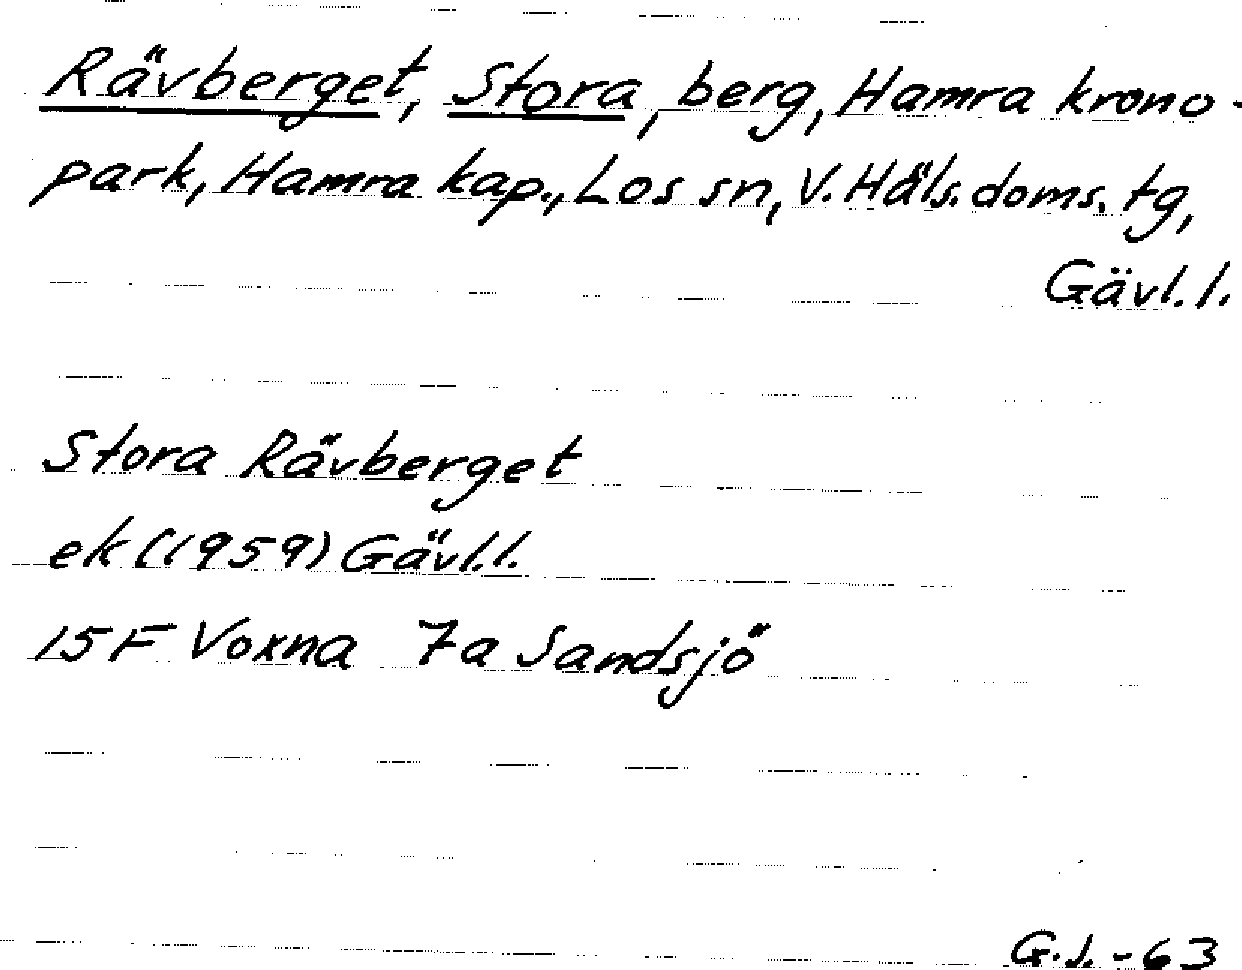 Rävberget, Stora, berg, Hamra krono-
park, Hamra kap., Los sn, V. Häls. doms. tg,
Gävl. l.
Stora Rävberget
ek (1959) Gävl. l.
15 F Voxna 7a Sandsjö
G.J.-63